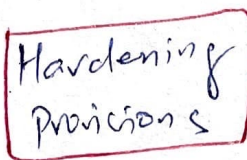 Hardening
Provisions